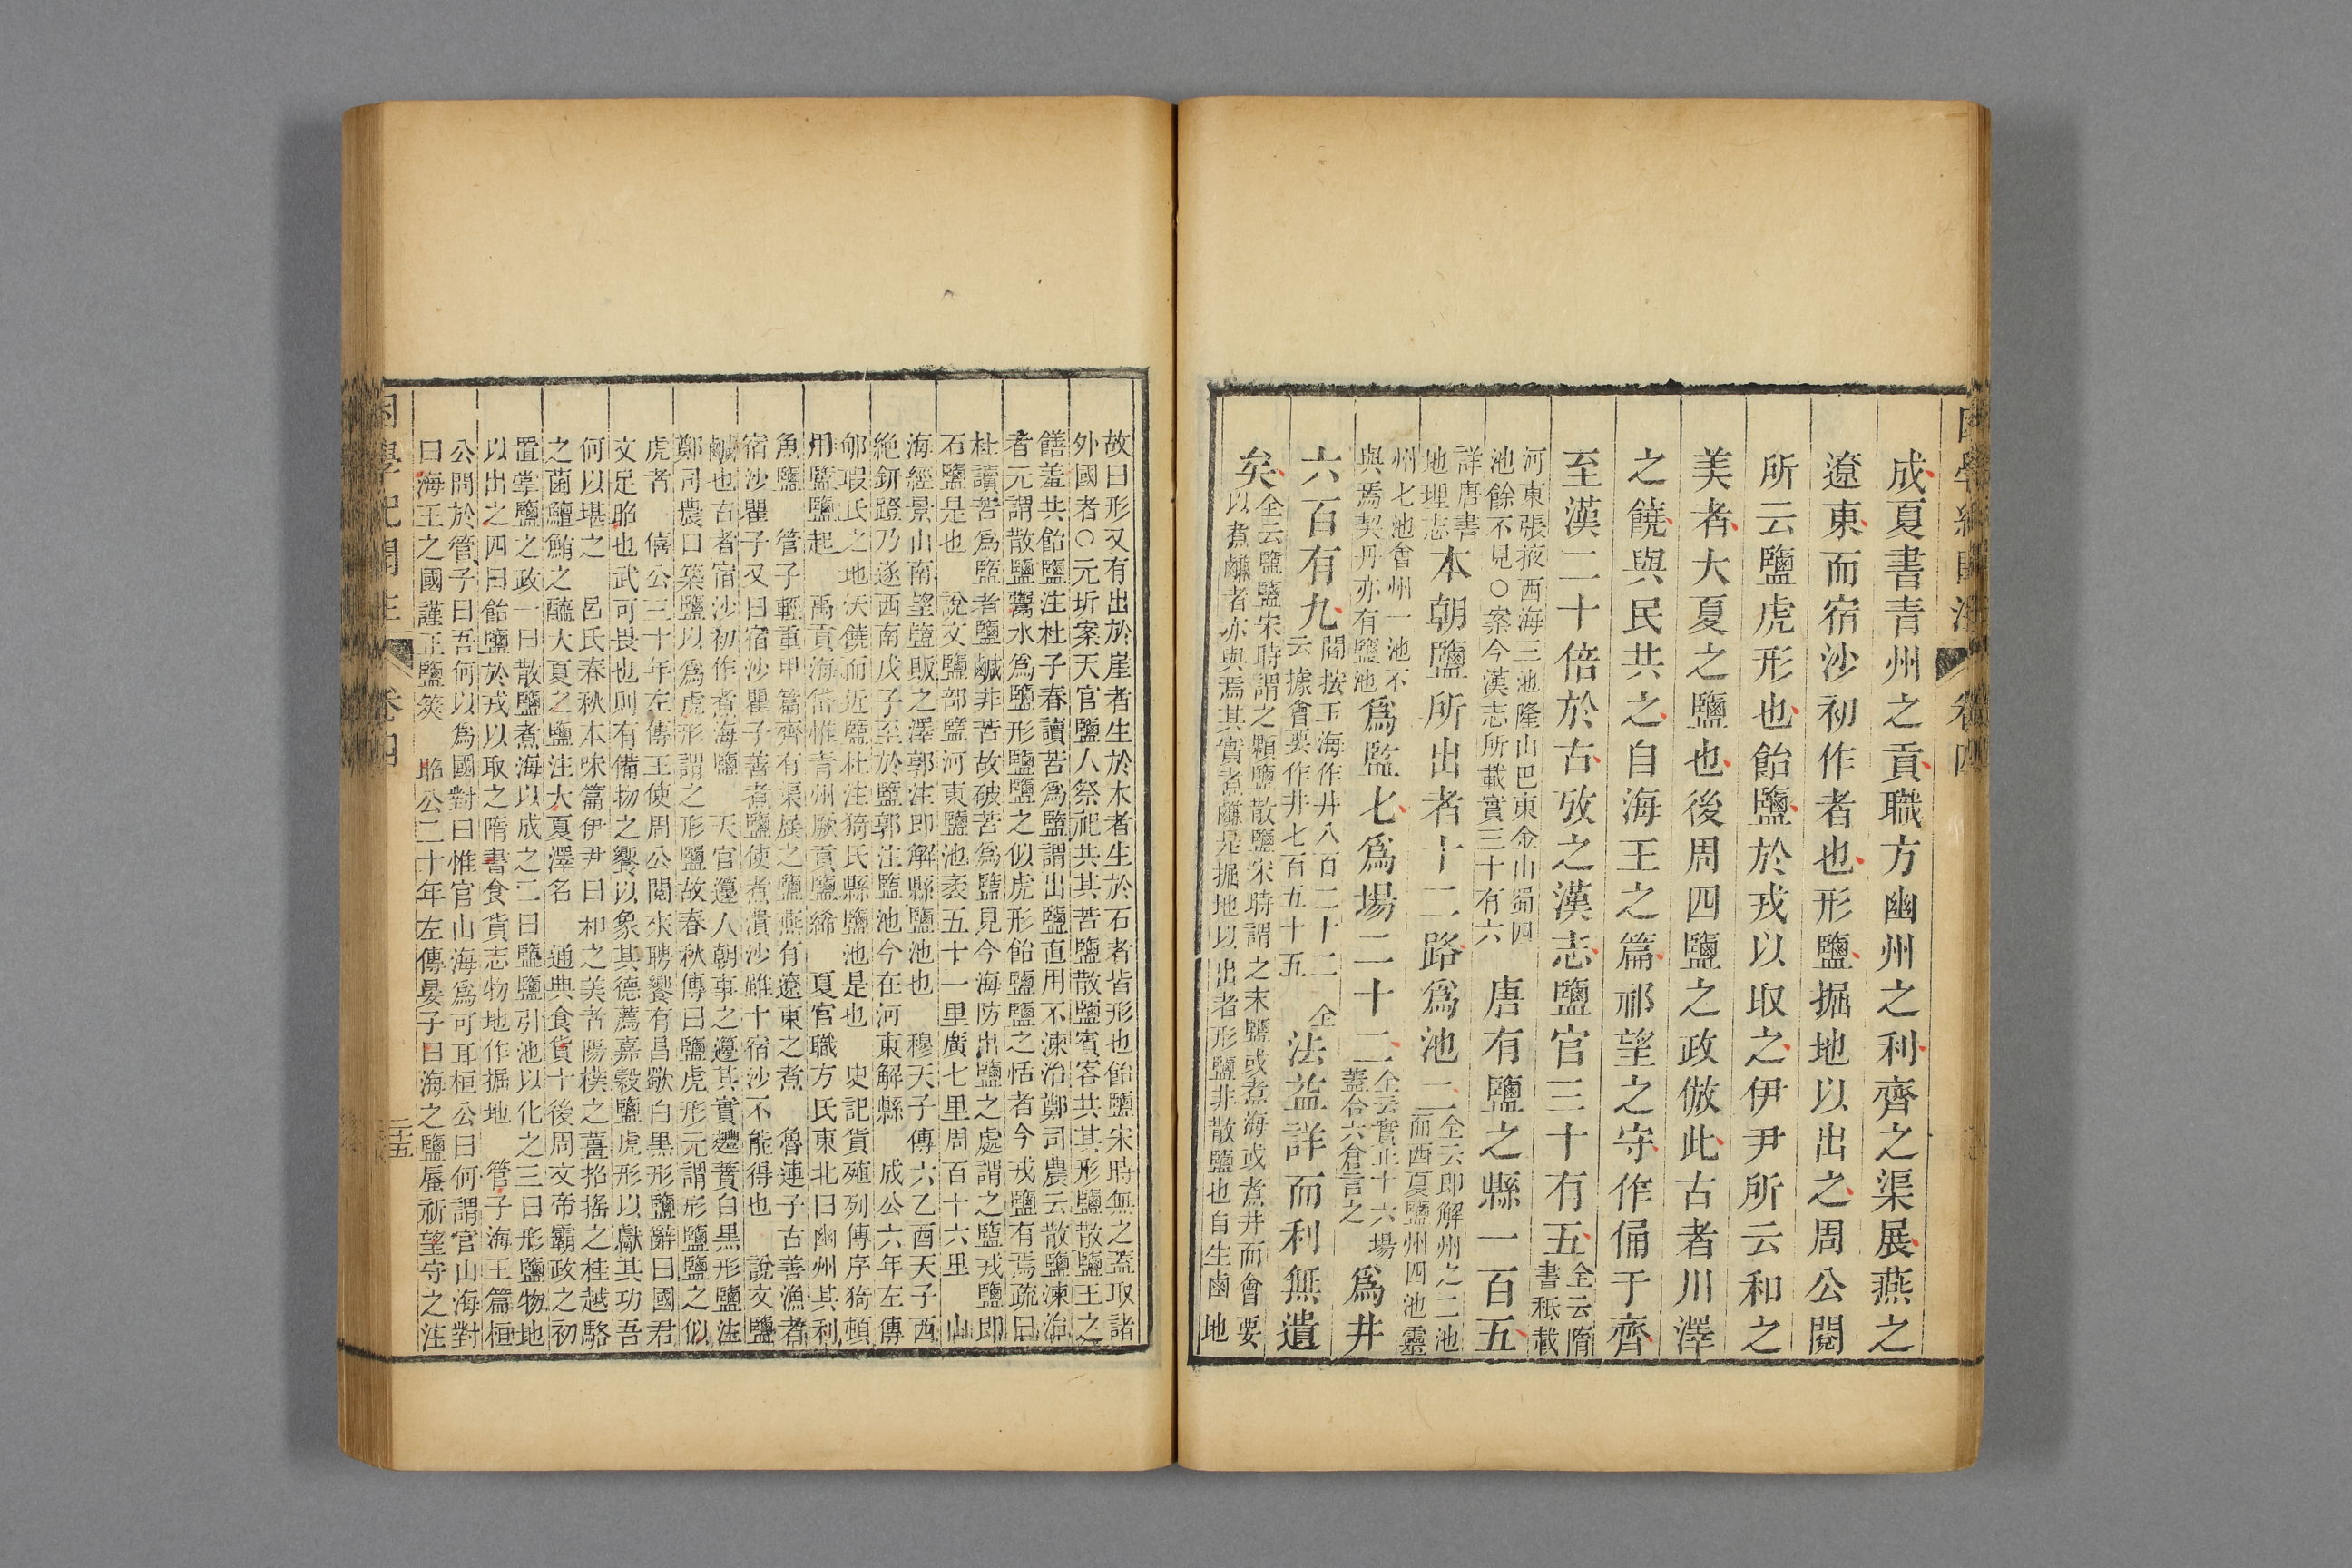 成夏書青州之貢職方幽州之利齊之渠展燕之
遼東而宿沙初作者也形鹽掘地以出之周公閱
所云鹽虎形也飴鹽於戎以取之伊尹所云和之
美者大夏之鹽也後周四鹽之政倣此古者川澤
之饒與民共之自海王之篇祁望之守作俑于齊
至漢二十倍於古攷之漢志鹽官三十有五
全云隋
書秖載
河東張掖西海三池隆山巴東金山蜀四
池餘不見○案今漢志所載實三十有六
唐有鹽之縣一百五
詳唐書
地理志
本朝鹽所出者十二路爲池二
全云即解州之二池
而西夏鹽州四池靈
州七池會州一池不
與焉契丹亦有鹽池
爲監七爲場二十二
全云實止十六場
蓋合六倉言之
爲井
六百有九
閻按玉海作井八百二十二 全
云據會要作井七百五十五
法益詳而利無遺
矣
全云鹽鹽宋時謂之顆鹽散鹽宋時謂之末鹽或煮海或煮井而會要
以煮鹻者亦與焉其實煮鹻是掘地以出者形鹽非散鹽也自生鹵地
故曰形又有出於崖者生於木者生於石者皆形也飴鹽宋時無之蓋取諸
外國者○元圻案天官鹽人祭祀共其苦鹽散鹽賓客共其形鹽散鹽王之
饍羞共飴鹽注杜子春讀苦爲盬謂出鹽直用不湅治鄭司農云散鹽湅治
者元謂散鹽鬻水爲鹽形鹽鹽之似虎形飴鹽鹽之恬者今戎鹽有焉疏曰
杜讀苦爲盬者鹽鹹非苦故破苦爲鹽見今海防出鹽之處謂之盬戎鹽即
石鹽是也 說文鹽部盬河東鹽池袤五十一里廣七里周百十六里 山
海經景山南望盬販之澤郭注即解縣鹽池也 穆天子傳六乙酉天子西
絶鈃隥乃遂西南戊子至於盬郭注盬池今在河東解縣 成公六年左傳
郇瑕氏之地沃饒而近盬杜注猗氏縣鹽池是也 史記貨殖列傳序猗頓
用盬鹽起 禹貢海岱惟青州厥貢鹽絺 夏官職方氏東北曰幽州其利
魚鹽 管子輕重甲篇齊有渠展之鹽燕有遼東之煮 魯連子古善漁者
宿沙瞿子又曰宿沙瞿子善煮鹽使煮潰沙雖十宿沙不能得也 說文鹽
鹹也古者宿沙初作煮海鹽 天官籩人朝事之籩其實麷蕡白黑形鹽注
鄭司農曰築鹽以爲虎形謂之形鹽故春秋傳曰鹽虎形元謂形鹽鹽之似
虎者 僖公三十年左傳王使周公閱來聘饗有昌歜白黑形鹽辭曰國君
文足昭也武可畏也則有備物之饗以象其德薦嘉穀鹽虎形以獻其功吾
何以堪之 呂氏春秋本味篇伊尹曰和之美者陽樸之薑招搖之桂越駱
之菌鱣鮪之醢大夏之鹽注大夏澤名 通典食貨十後周文帝霸政之初
置掌鹽之政一曰散鹽煮海以成之二曰盬鹽引池以化之三曰形鹽物地
以出之四曰飴鹽於戎以取之隋書食貨志物地作掘地 管子海王篇桓
公問於管子曰吾何以爲國對曰惟官山海爲可耳桓公曰何謂官山海對
曰海王之國謹正鹽筴 昭公二十年左傳晏子曰海之鹽蜃祈望守之注
困學紀聞注 卷四 二十五